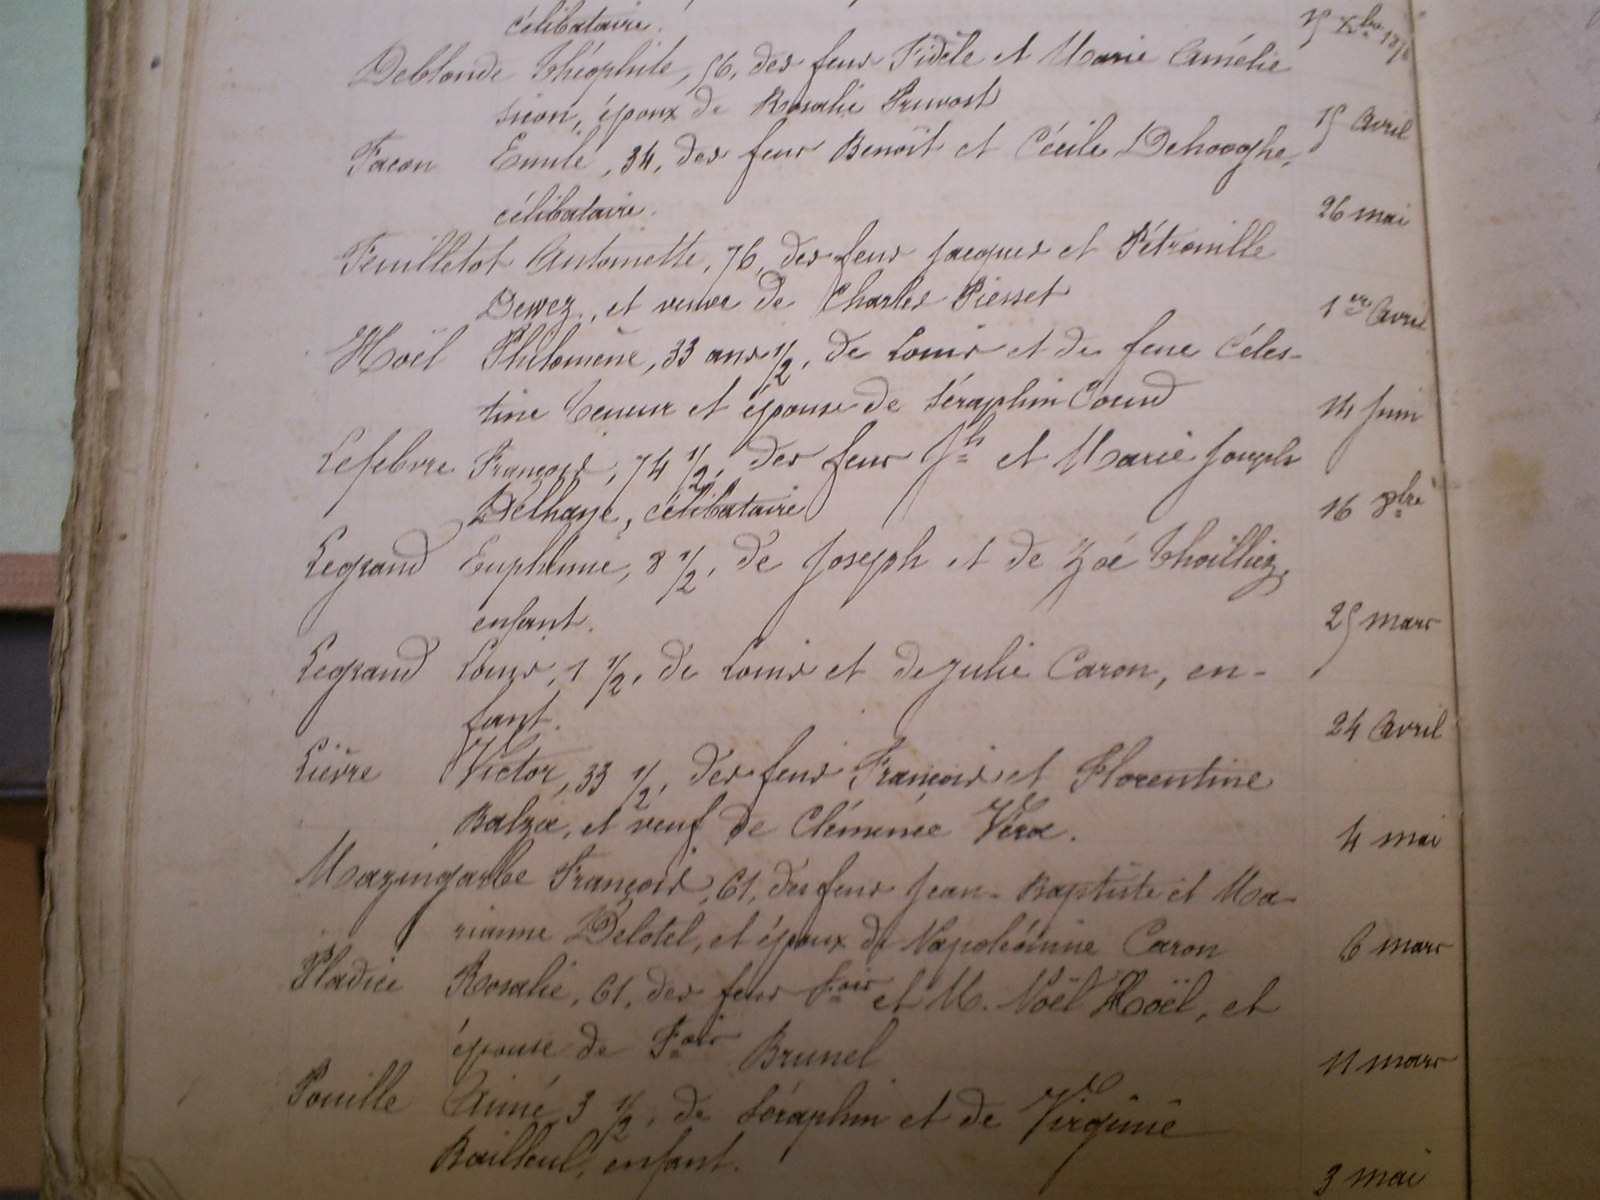 célibataire. 15 Xbre 187
Deblonde Théophile, 56, des feus Fidèle et Marie Amélie
sion, époux de Rosalie Pruvost 15 Avril
Facon Emile, 34, des feus Benoît et Cécile Dehooghe,
célibataire. 26 mai
Feuilletot Antoinette, 76, des feus Jacques et Pétronille
Dewez, et veuve de Charles Piesset 1er Avril
Hoël Philomène, 33 ans 1/2, de Louis et de feue Céles-
tine Teneur et épouse de Séraphin Coeud 14 Juin
Lefebvre François, 74 1/2, des feus Jh et Marie Joseph
Delhaye, célibataire 16 8bre
Legrand Euphémie, 8 1/2, de Joseph et de Zoé Thoilliez,
enfant. 25 mars
Legrand Louis, 1 1/2, de Louis et de Julie Caron, en-
fant. 24 Avril
Lièvre Victor, 33 1/2, des feus François et Florentine
Balza, et veuf de Clémence Véra. 4 mai
Mazingarbe François, 61, des feus Jean-Baptiste et Ma-
rianne Delotel, et époux de Napoléonine Caron 6 mars
Pladice Rosalie, 61, des feus Fois et M. Noël Hoël, et
épouse de Fois Brunel 11 mars
Pouille Aimé, 3 1/2, de Séraphin et de Virginie
Bailleul, enfant. 3 mai